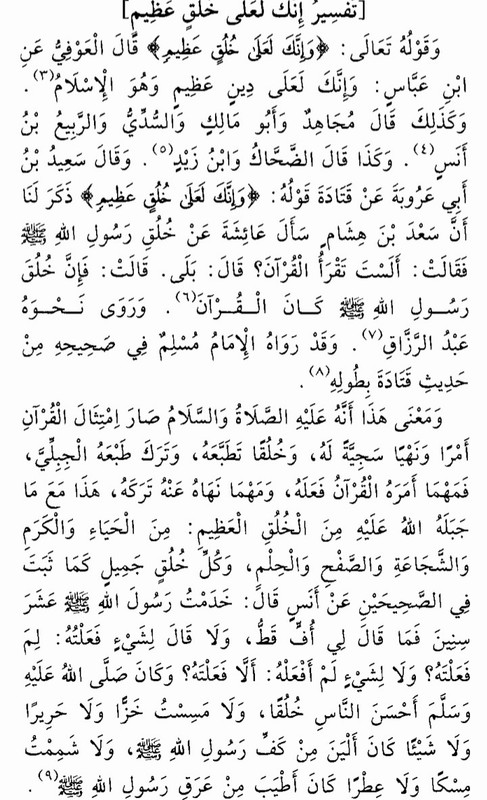 [تَفْسِيرُ إِنَّكَ لَعَلَى خُلُقٍ عَظِيمٍ]
وَقَوْلُهُ تَعَالَى: ﴿وَإِنَّكَ لَعَلَىٰ خُلُقٍ عَظِيمٍ﴾ قَالَ الْعَوْفِيُّ عَنِ
ابْنِ عَبَّاسٍ: وَإِنَّكَ لَعَلَى دِينٍ عَظِيمٍ وَهُوَ الْإِسْلَامُ(٣).
وَكَذَلِكَ قَالَ مُجَاهِدٌ وَأَبُو مَالِكٍ وَالسُّدِّيُّ وَالرَّبِيعُ بْنُ
أَنَسٍ(٤). وَكَذَا قَالَ الضَّحَّاكُ وَابْنُ زَيْدٍ(٥). وَقَالَ سَعِيدُ بْنُ
أَبِي عَرُوبَةَ عَنْ قَتَادَةَ قَوْلُهُ: ﴿وَإِنَّكَ لَعَلَىٰ خُلُقٍ عَظِيمٍ﴾ ذَكَرَ لَنَا
أَنَّ سَعْدَ بْنَ هِشَامٍ سَأَلَ عَائِشَةَ عَنْ خُلُقِ رَسُولِ اللهِ ﷺ
فَقَالَتْ: أَلَسْتَ تَقْرَأُ الْقُرْآنَ؟ قَالَ: بَلَى. قَالَتْ: فَإِنَّ خُلُقَ
رَسُولِ اللهِ ﷺ كَانَ الْقُرْآنَ(٦). وَرَوَى نَحْوَهُ
عَبْدُ الرَّزَّاقِ(٧). وَقَدْ رَوَاهُ الْإِمَامُ مُسْلِمٌ فِي صَحِيحِهِ مِنْ
حَدِيثِ قَتَادَةَ بِطُولِهِ(٨).
وَمَعْنَى هَذَا أَنَّهُ عَلَيْهِ الصَّلَاةُ وَالسَّلَامُ صَارَ اِمْتِثَالَ الْقُرْآنِ
أَمْرًا وَنَهْيًا سَجِيَّةً لَهُ، وَخُلُقًا تَطَبَّعَهُ، وَتَرَكَ طَبْعَهُ الْجِبِلِّيَّ،
فَمَهْمَا أَمَرَهُ الْقُرْآنُ فَعَلَهُ، وَمَهْمَا نَهَاهُ عَنْهُ تَرَكَهُ، هَذَا مَعَ مَا
جَبَلَهُ اللهُ عَلَيْهِ مِنَ الْخُلُقِ الْعَظِيمِ: مِنَ الْحَيَاءِ وَالْكَرَمِ
وَالشَّجَاعَةِ وَالصَّفْحِ وَالْحِلْمِ، وَكُلِّ خُلُقٍ جَمِيلٍ كَمَا ثَبَتَ
فِي الصَّحِيحَيْنِ عَنْ أَنَسٍ قَالَ: خَدَمْتُ رَسُولَ اللهِ ﷺ عَشَرَ
سِنِينَ فَمَا قَالَ لِي أُفٍّ قَطُّ، وَلَا قَالَ لِشَيْءٍ فَعَلْتُهُ: لِمَ
فَعَلْتَهُ؟ وَلَا لِشَيْءٍ لَمْ أَفْعَلْهُ: أَلَّا فَعَلْتَهُ؟ وَكَانَ صَلَّى اللهُ عَلَيْهِ
وَسَلَّمَ أَحْسَنَ النَّاسِ خُلُقًا، وَلَا مَسِسْتُ خَزًّا وَلَا حَرِيرًا
وَلَا شَيْئًا كَانَ أَلْيَنَ مِنْ كَفِّ رَسُولِ اللهِ ﷺ، وَلَا شَمِمْتُ
مِسْكًا وَلَا عِطْرًا كَانَ أَطْيَبَ مِنْ عَرَقِ رَسُولِ اللهِ ﷺ(٩).